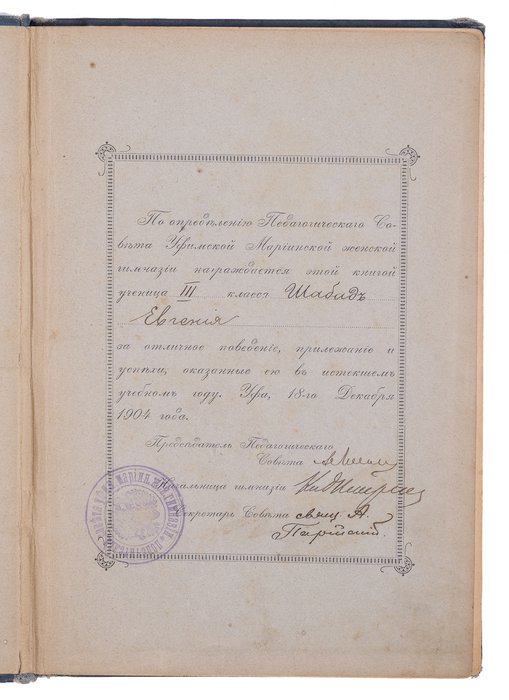 По опредѣленію Педагогическаго Со-
вѣта Уфимской Маріинской женской
гимназіи награждается этой книгой
ученица III класса Шабадъ
Евгенія
за отличное поведеніе, прилежаніе и
успѣхи, оказанные ею въ истекшемъ
учебномъ году. Уфа, 18-го Декабря
1904 года.
Предсѣдатель Педагогическаго
Совѣта
Начальница гимназіи
Секретарь Совѣта свящ. А.